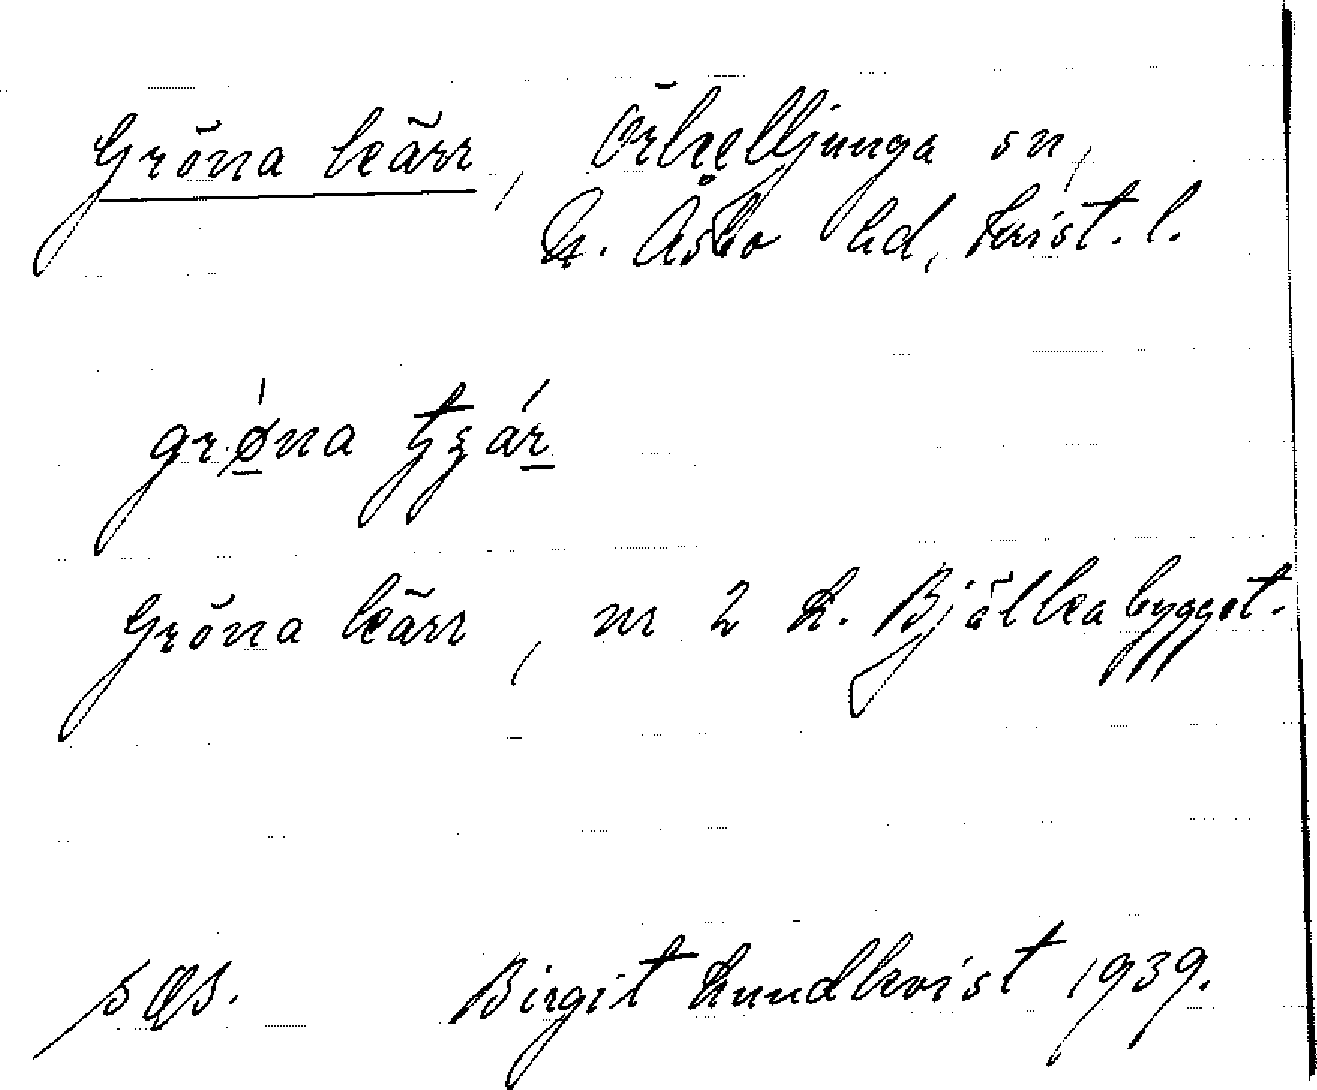 Gröna kärr, Örkelljunga sn,
N. Åsbo hd, Krist. l.
grøna tʒár
Gröna kärr, nr 2 L. Bjälkabygget.
Birgit Lundkvist 1939.